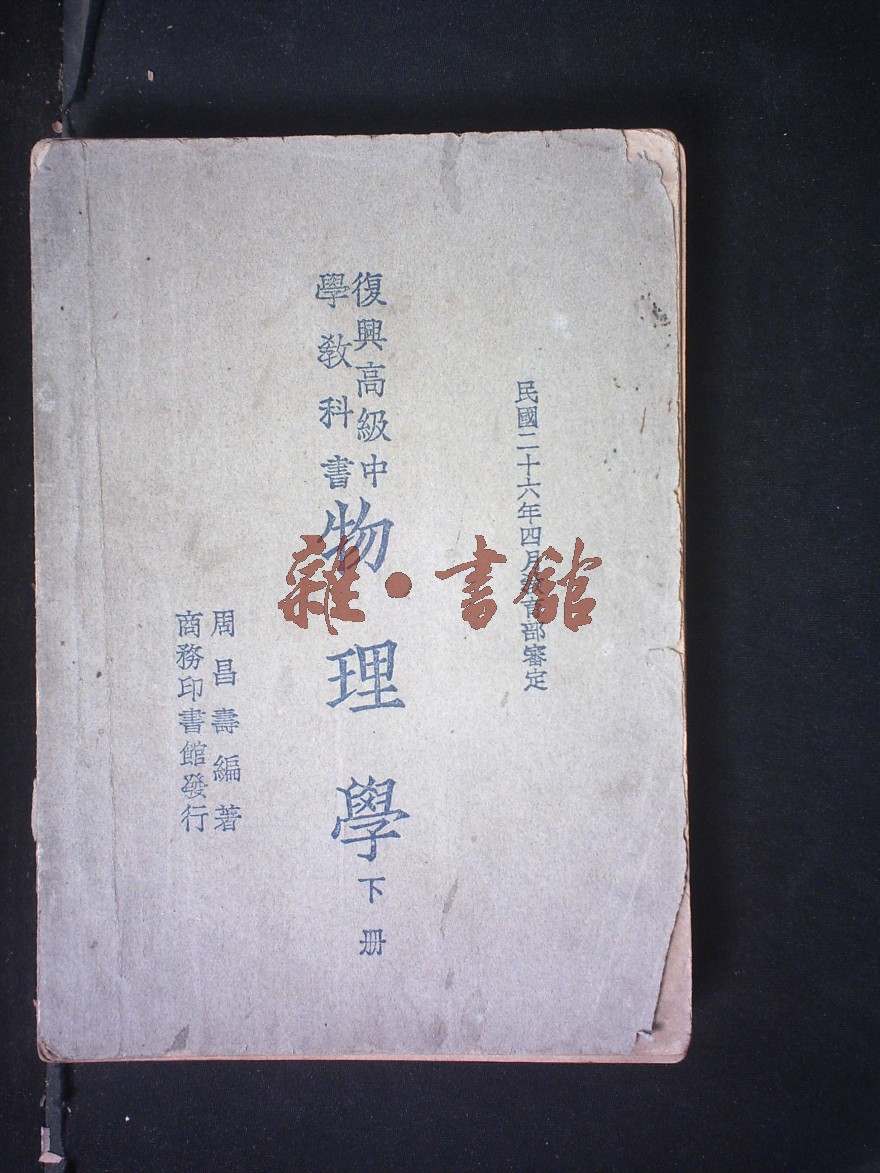 民國二十六年四月教育部審定
復興高級中
學教科書
物理學下册
周昌壽編著
商務印書館發行
雜·書館